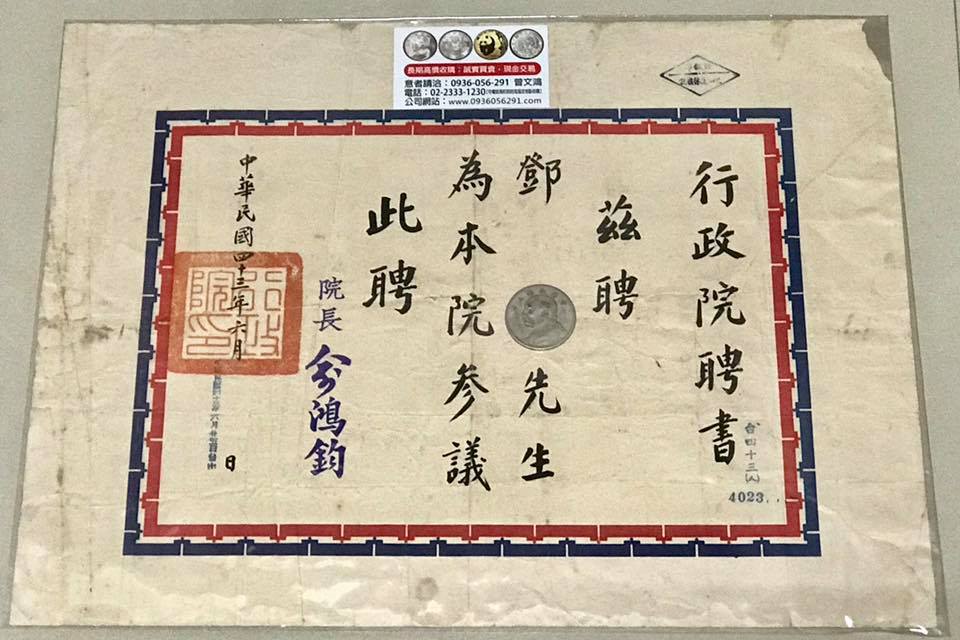 長期高價收購；誠實買賣・現金交易
意者請洽：0936-056-291 曾文鴻
電話：02-2333-1230
公司網站：www.0936056291.com
行政院聘書
台四十三(人)
4023
茲聘
鄧 先生
為本院參議
此聘
院長 俞鴻鈞
中華民國四十三年六月 日
行政院印